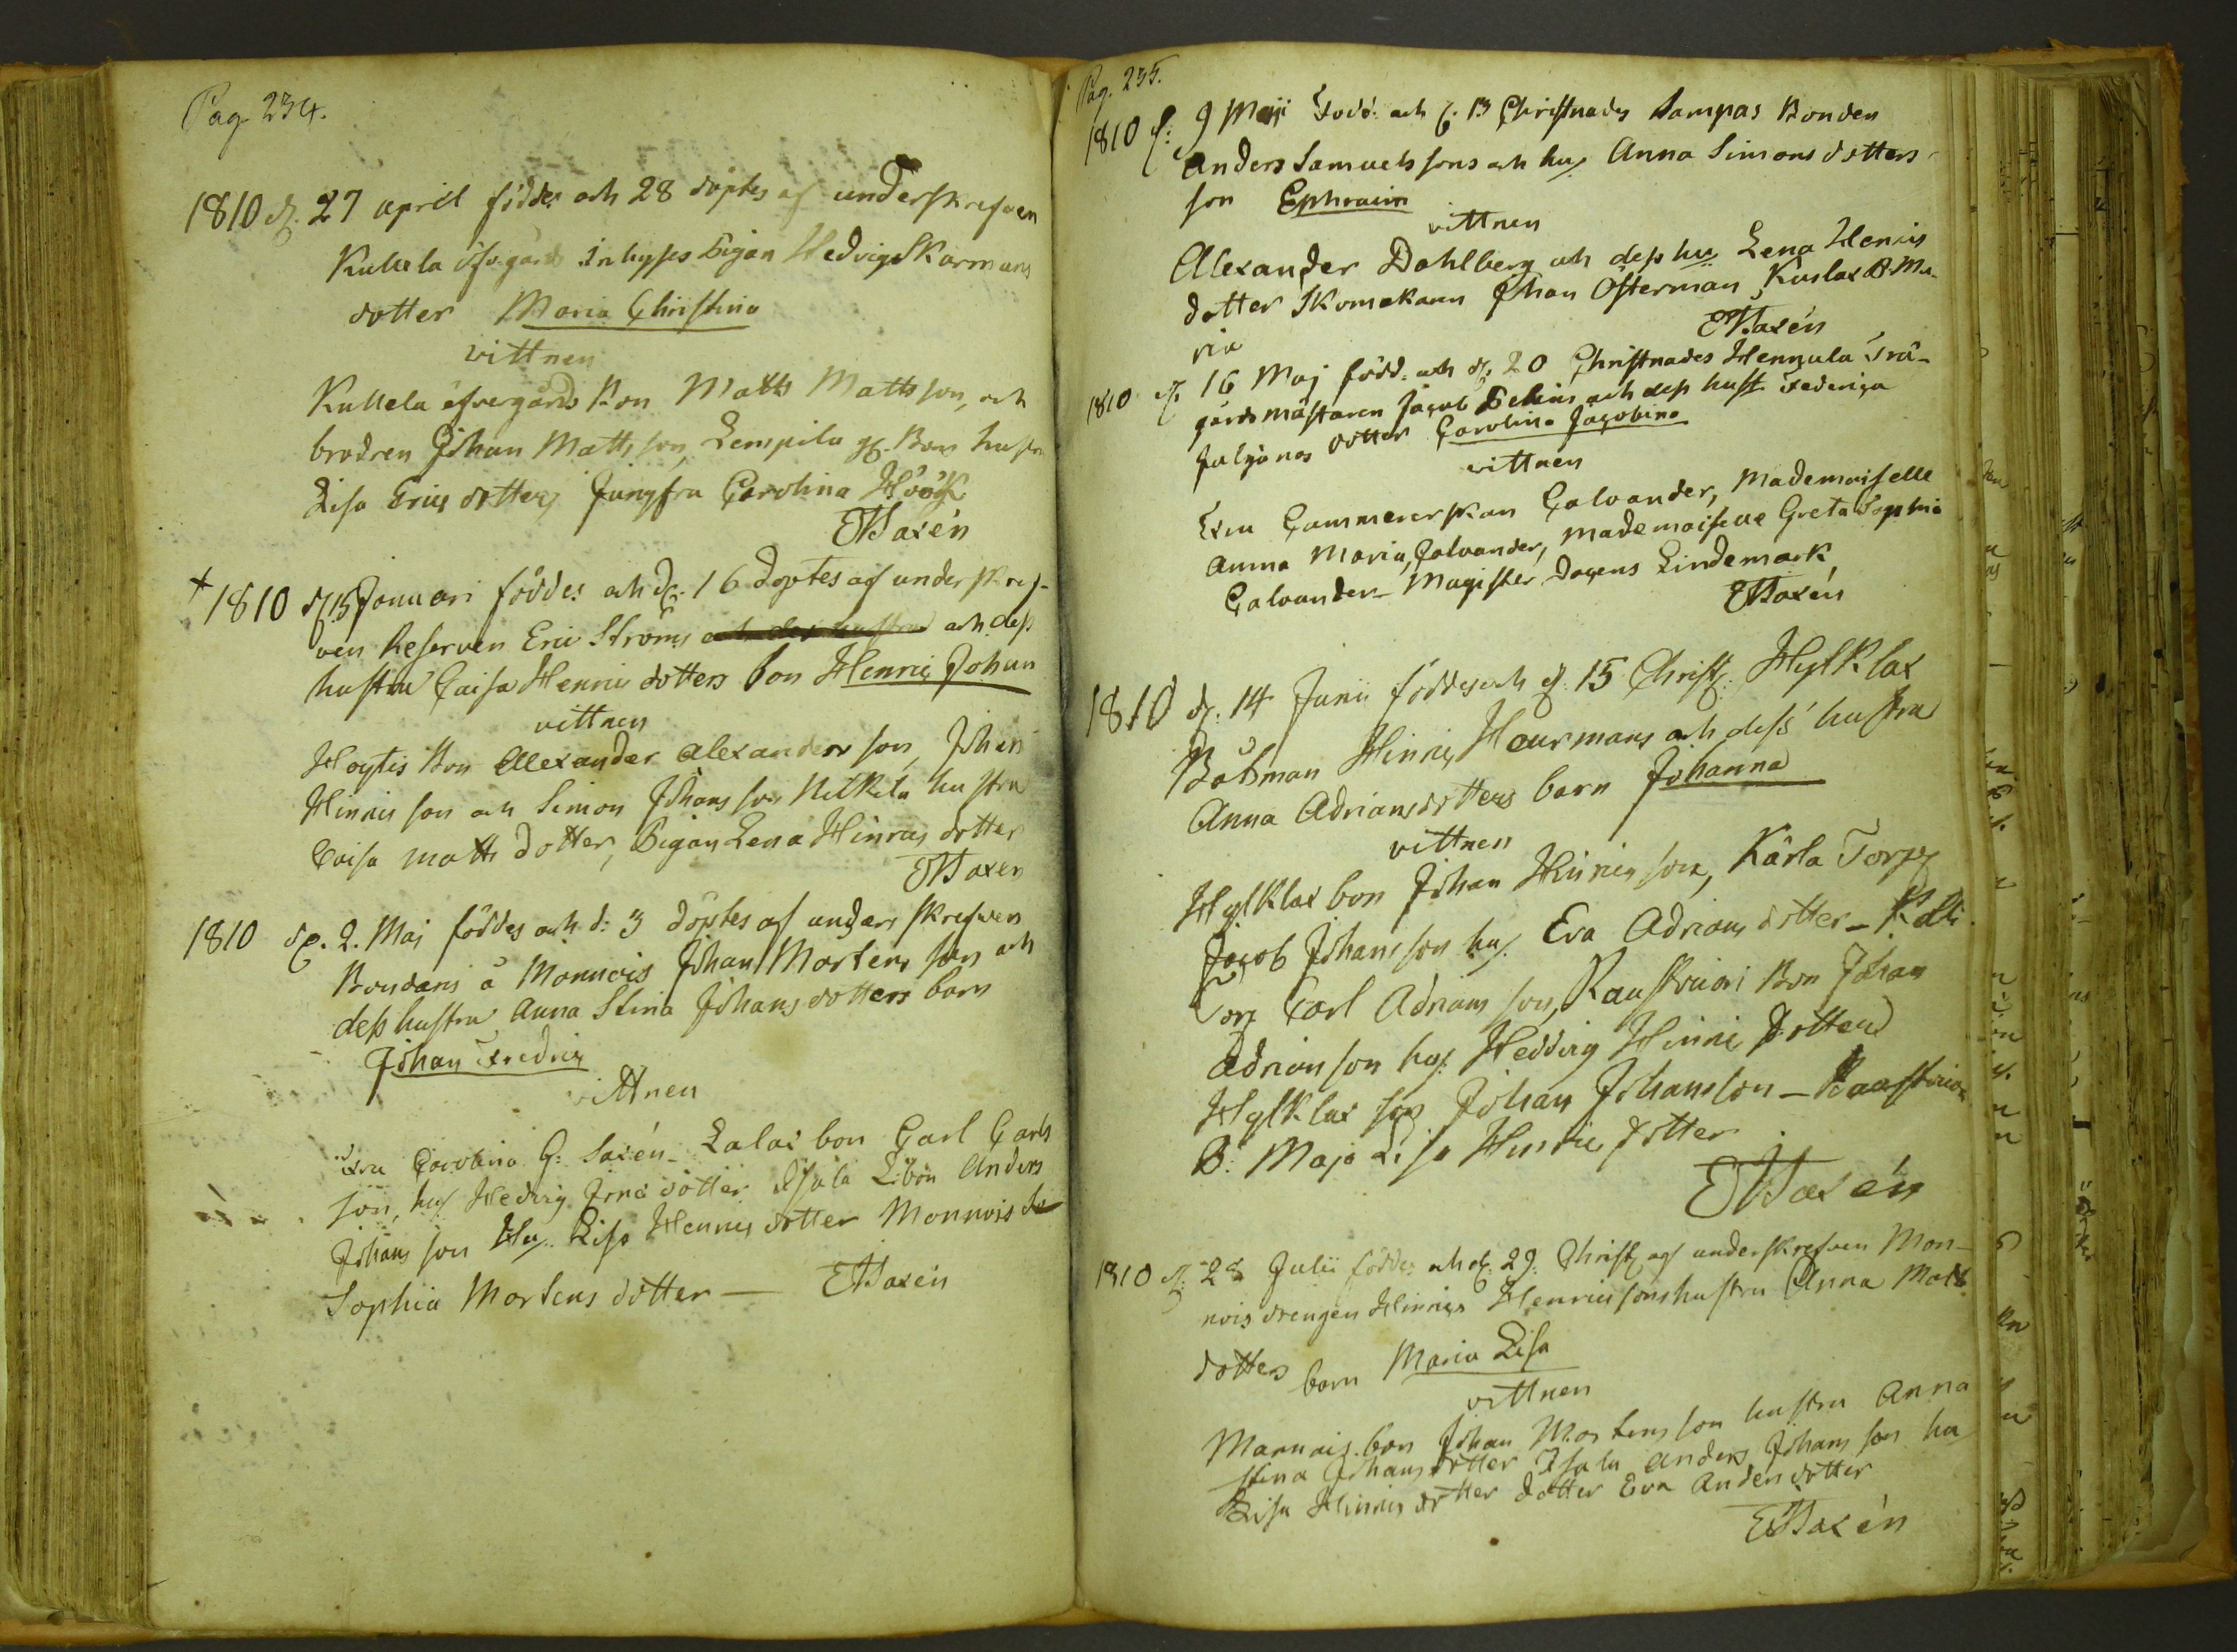 Pag. 234.
1810 d. 27 april föddes och 28 döptes af underskrefven
Kullela öfvergårds Inhyses Pigan Hedvig Skarmans
dotter Maria Christina
vittnen
Kullela öfvergårds Bon Matts Mattsson, och
brodren Johan Mattsson, Lempila Bon hustru
Lisa Erics dotter, Jungfru Carolina Höök
E Saxén
+ 1810 d. 15 Januari föddes och d. 16 döptes af underskref-
ven Reserven Eric Ströms och dess
hustru Caisa Henrics dotters son Henric Johan
vittnen
Bon Alexander Alexandersson, Johan
Hinricsson och Simon Johansson hustru
Caisa Matts dotter, Pigan Lena Hinrics dotter
E Saxen
1810 d. 2. Maj föddes och d: 3 döptes af underskrefven
Bondans å Monnois Johan Mortens son och
dess hustru Anna Stina Johans dotters barn
Johan Fredric
vittnen
Fru Carolina G: Saxén - Lalax bon Carl Carls
son, hus Hedvig dotter Isala Anders
Johans son Hu. Lisa Henrics dotter Monnois
Sophia Mortens dotter — E Saxén
Pag. 235.
1810 d: 9 Maji Född. och d. 13 Christnades Sampas Bonden
Anders Samuelssons och hus Anna Simons dotters
son Ephraim
vittnen
Alexander Dahlberg och dess hu Lena Henrics
dotter Skomakarn Johan Österman, Kuslax B. Ma-
ria E Saxén
1810 d. 16 Maj född. och d. 20 Christnades Hennala Trä-
gårdsmästaren Jacob och dess hust. Federica
dotter Carolina Jacobina
vittnen
Fru Cammererskan Calvander, Mademoiselle
Anna Maria Calvander, Mademoiselle Greta Sophia
Calvander - Magister Docens Lindemark
E Saxén
1810 d. 14 Junii föddes och d. 15 Christ. Hylklax
Båtsman Hinric Haurmans och dess hustru
Anna Adriansdotters barn Johanna
vittnen
Hylklax bon Johan Hinricsson, Kärla Torp
Jacob Johansson hus. Eva Adrians dotter -
Carl Adrians son, Bon Johan
Adrianson hus. Hedvig Hinric Dotter
Hylklax son Johan Johansson -
B. Maja Lisa Hinrics dotter
E Saxén
1810 d: 28 Julii föddes och d. 29. Christ af underskrefven Mon-
nois drengen Hinrics Henricssons hustru Anna Matts
dotters barn Maria Lisa
vittnen
Monnois bon Johan Mortensson hustru Anna
Stina Johans dotter Isala Anders Johans son hu
Lisa Hinrics dotter dotter Eva Anders dotter
E Saxén